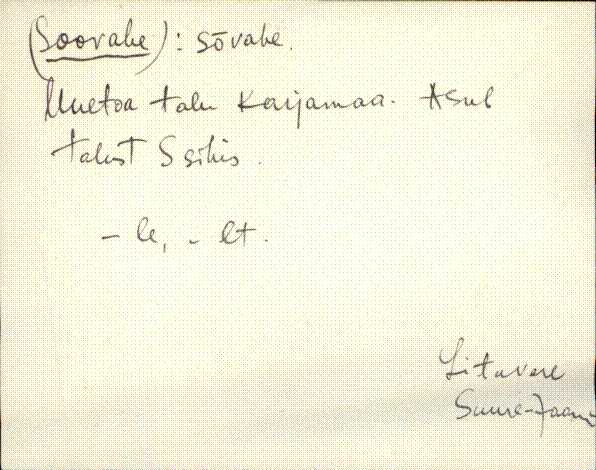 (Soovahe): sōvahe.
Uuetoa talu karjamaa. Asub
talust S sihis.
- le, - lt.
Litavere
Suure-Jaani